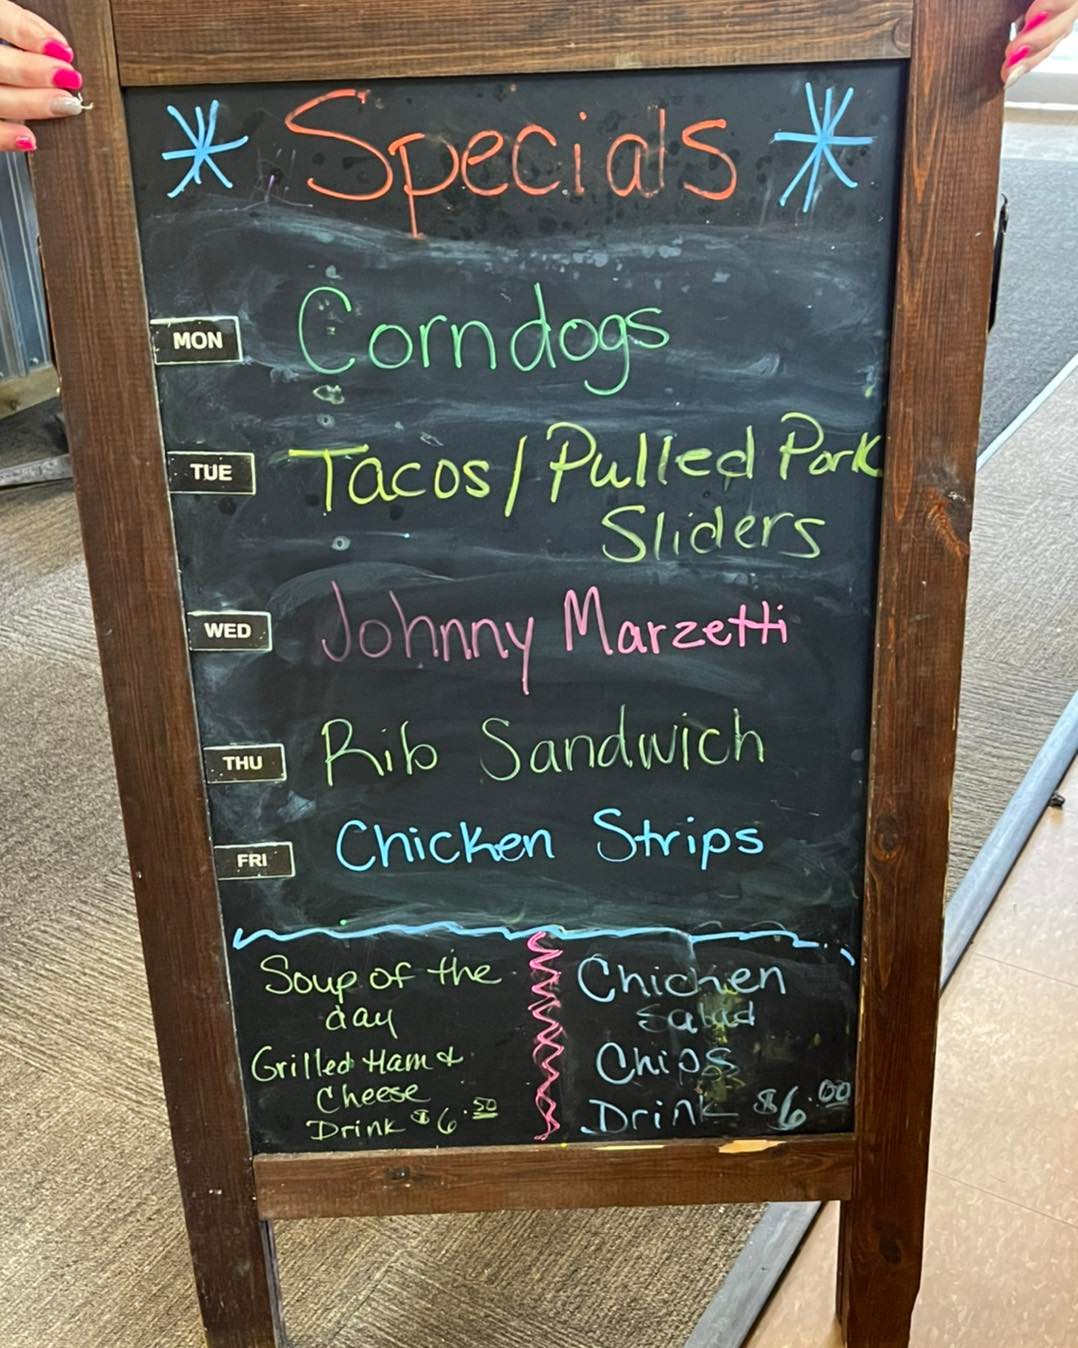 Specials
MON Corndogs
TUE Tacos/Pulled Pork
Sliders
WED Johnny Marzetti
THU Rib Sandwich
FRI Chicken Strips
Soup of the
day
Grilled Ham &
Cheese
Drink $6.50
Chicken
Salad
Chips
Drink $6.00